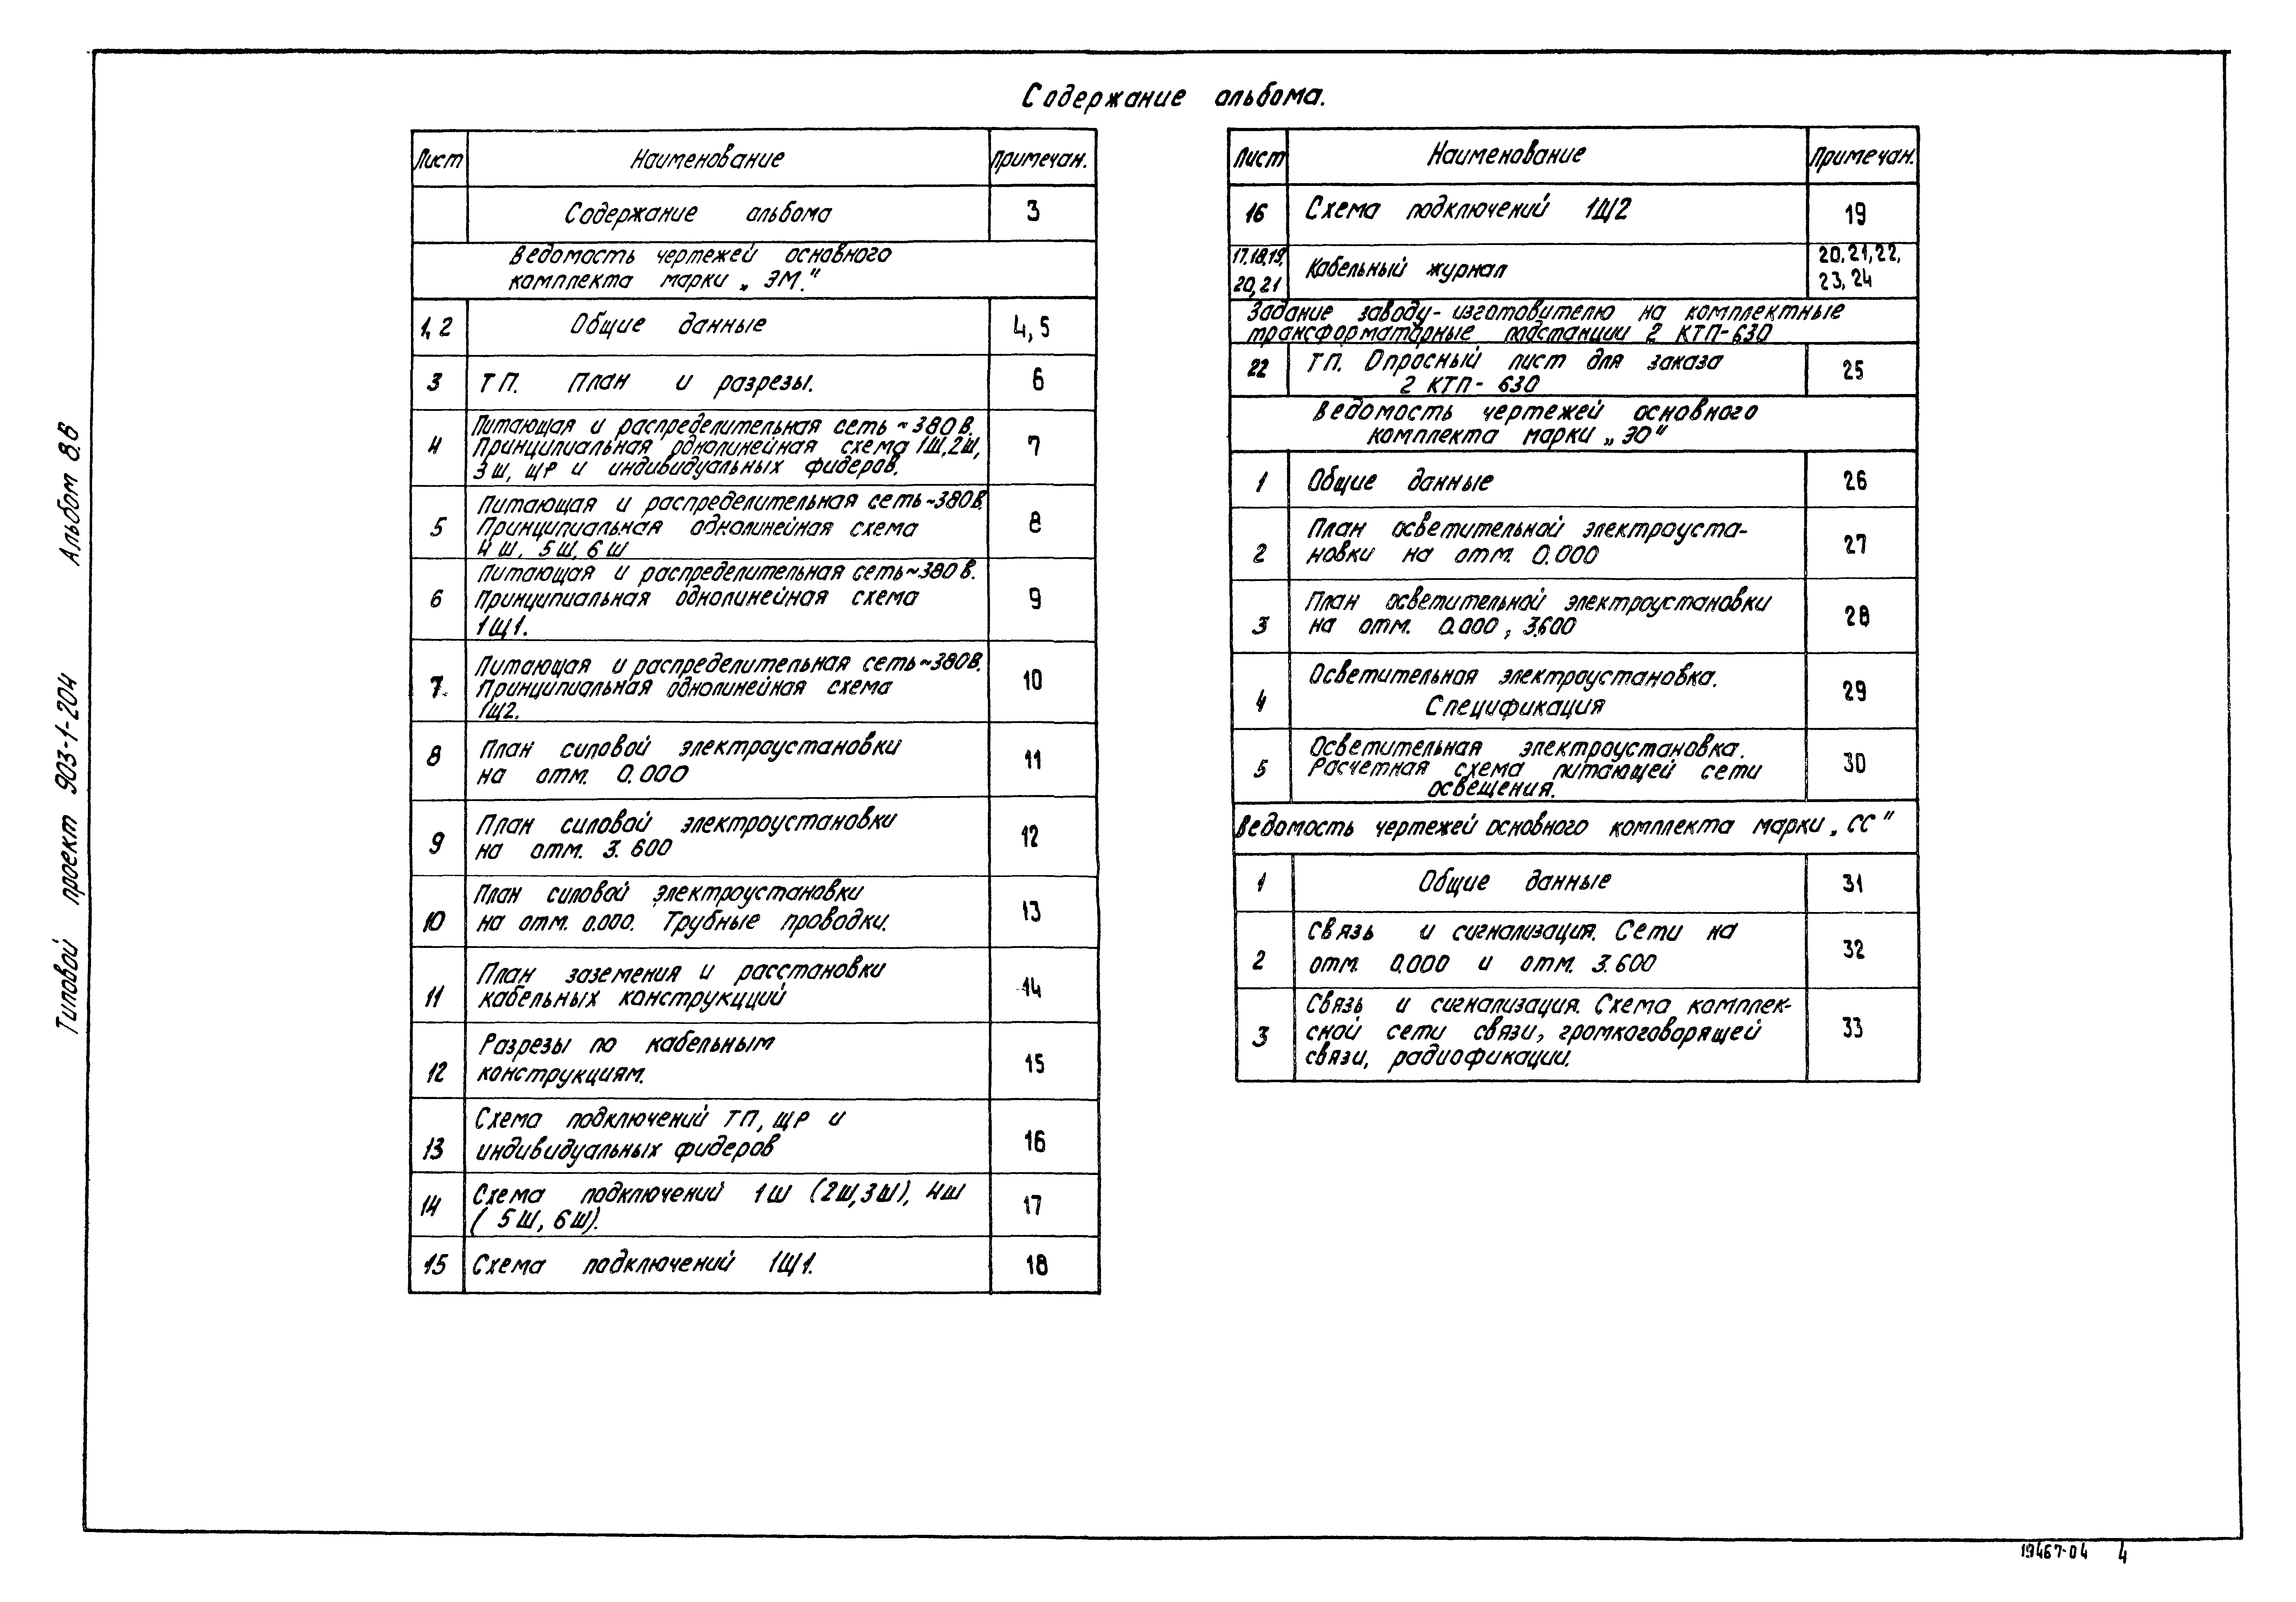 Содержание альбома.
Лист Наименование Примечан.
Содержание альбома 3
Ведомость чертежей основного
комплекта марки „ЭМ."
1,2 Общие данные 4,5
3 ТП. План и разрезы. 6
Питающая и распределительная сеть ~380В.
4 Принципиальная однолинейная схема 1Ш,2Ш, 7
3Ш, ЩР и индивидуальных фидеров.
Питающая и распределительная сеть ~380В.
5 Принципиальная однолинейная схема 8
4Ш, 5Ш, 6Ш
Питающая и распределительная сеть ~380В.
6 Принципиальная однолинейная схема 9
1Щ1.
Питающая и распределительная сеть ~380В.
7 Принципиальная однолинейная схема 10
1Щ2.
8 План силовой электроустановки 11
на отм. 0.000
9 План силовой электроустановки 12
на отм. 3.600
План силовой электроустановки
10 на отм. 0.000. Трубные проводки. 13
План заземения и расстановки
11 кабельных конструкций 14
Разрезы по кабельным
12 конструкциям. 15
Схема подключений ТП, ЩР и
13 индивидуальных фидеров 16
14 Схема подключений 1Ш (2Ш,3Ш), 4Ш 17
(5Ш, 6Ш).
15 Схема подключений 1Щ1. 18
Лист Наименование Примечан.
16 Схема подключений 1Щ2 19
17,18,19, Кабельный журнал 20,21,22,
20,21 23,24
Задание заводу-изготовителю на комплектные
трансформаторные подстанции 2 КТП-630
22 ТП. Опросный лист для заказа 25
2 КТП-630
Ведомость чертежей основного
комплекта марки „ЭО"
1 Общие данные 26
План осветительной электроуста-
2 новки на отм. 0.000 27
План осветительной электроустановки
3 на отм. 0.000, 3.600 28
Осветительная электроустановка.
4 Спецификация 29
Осветительная электроустановка.
5 Расчетная схема питающей сети 30
освещения.
Ведомость чертежей основного комплекта марки „СС"
1 Общие данные 31
Связь и сигнализация. Сети на
2 отм. 0.000 и отм. 3.600 32
Связь и сигнализация. Схема комплек-
3 сной сети связи, громкоговорящей 33
связи, радиофикации.
Типовой проект 903-1-204 Альбом 8.8
19467-04 4